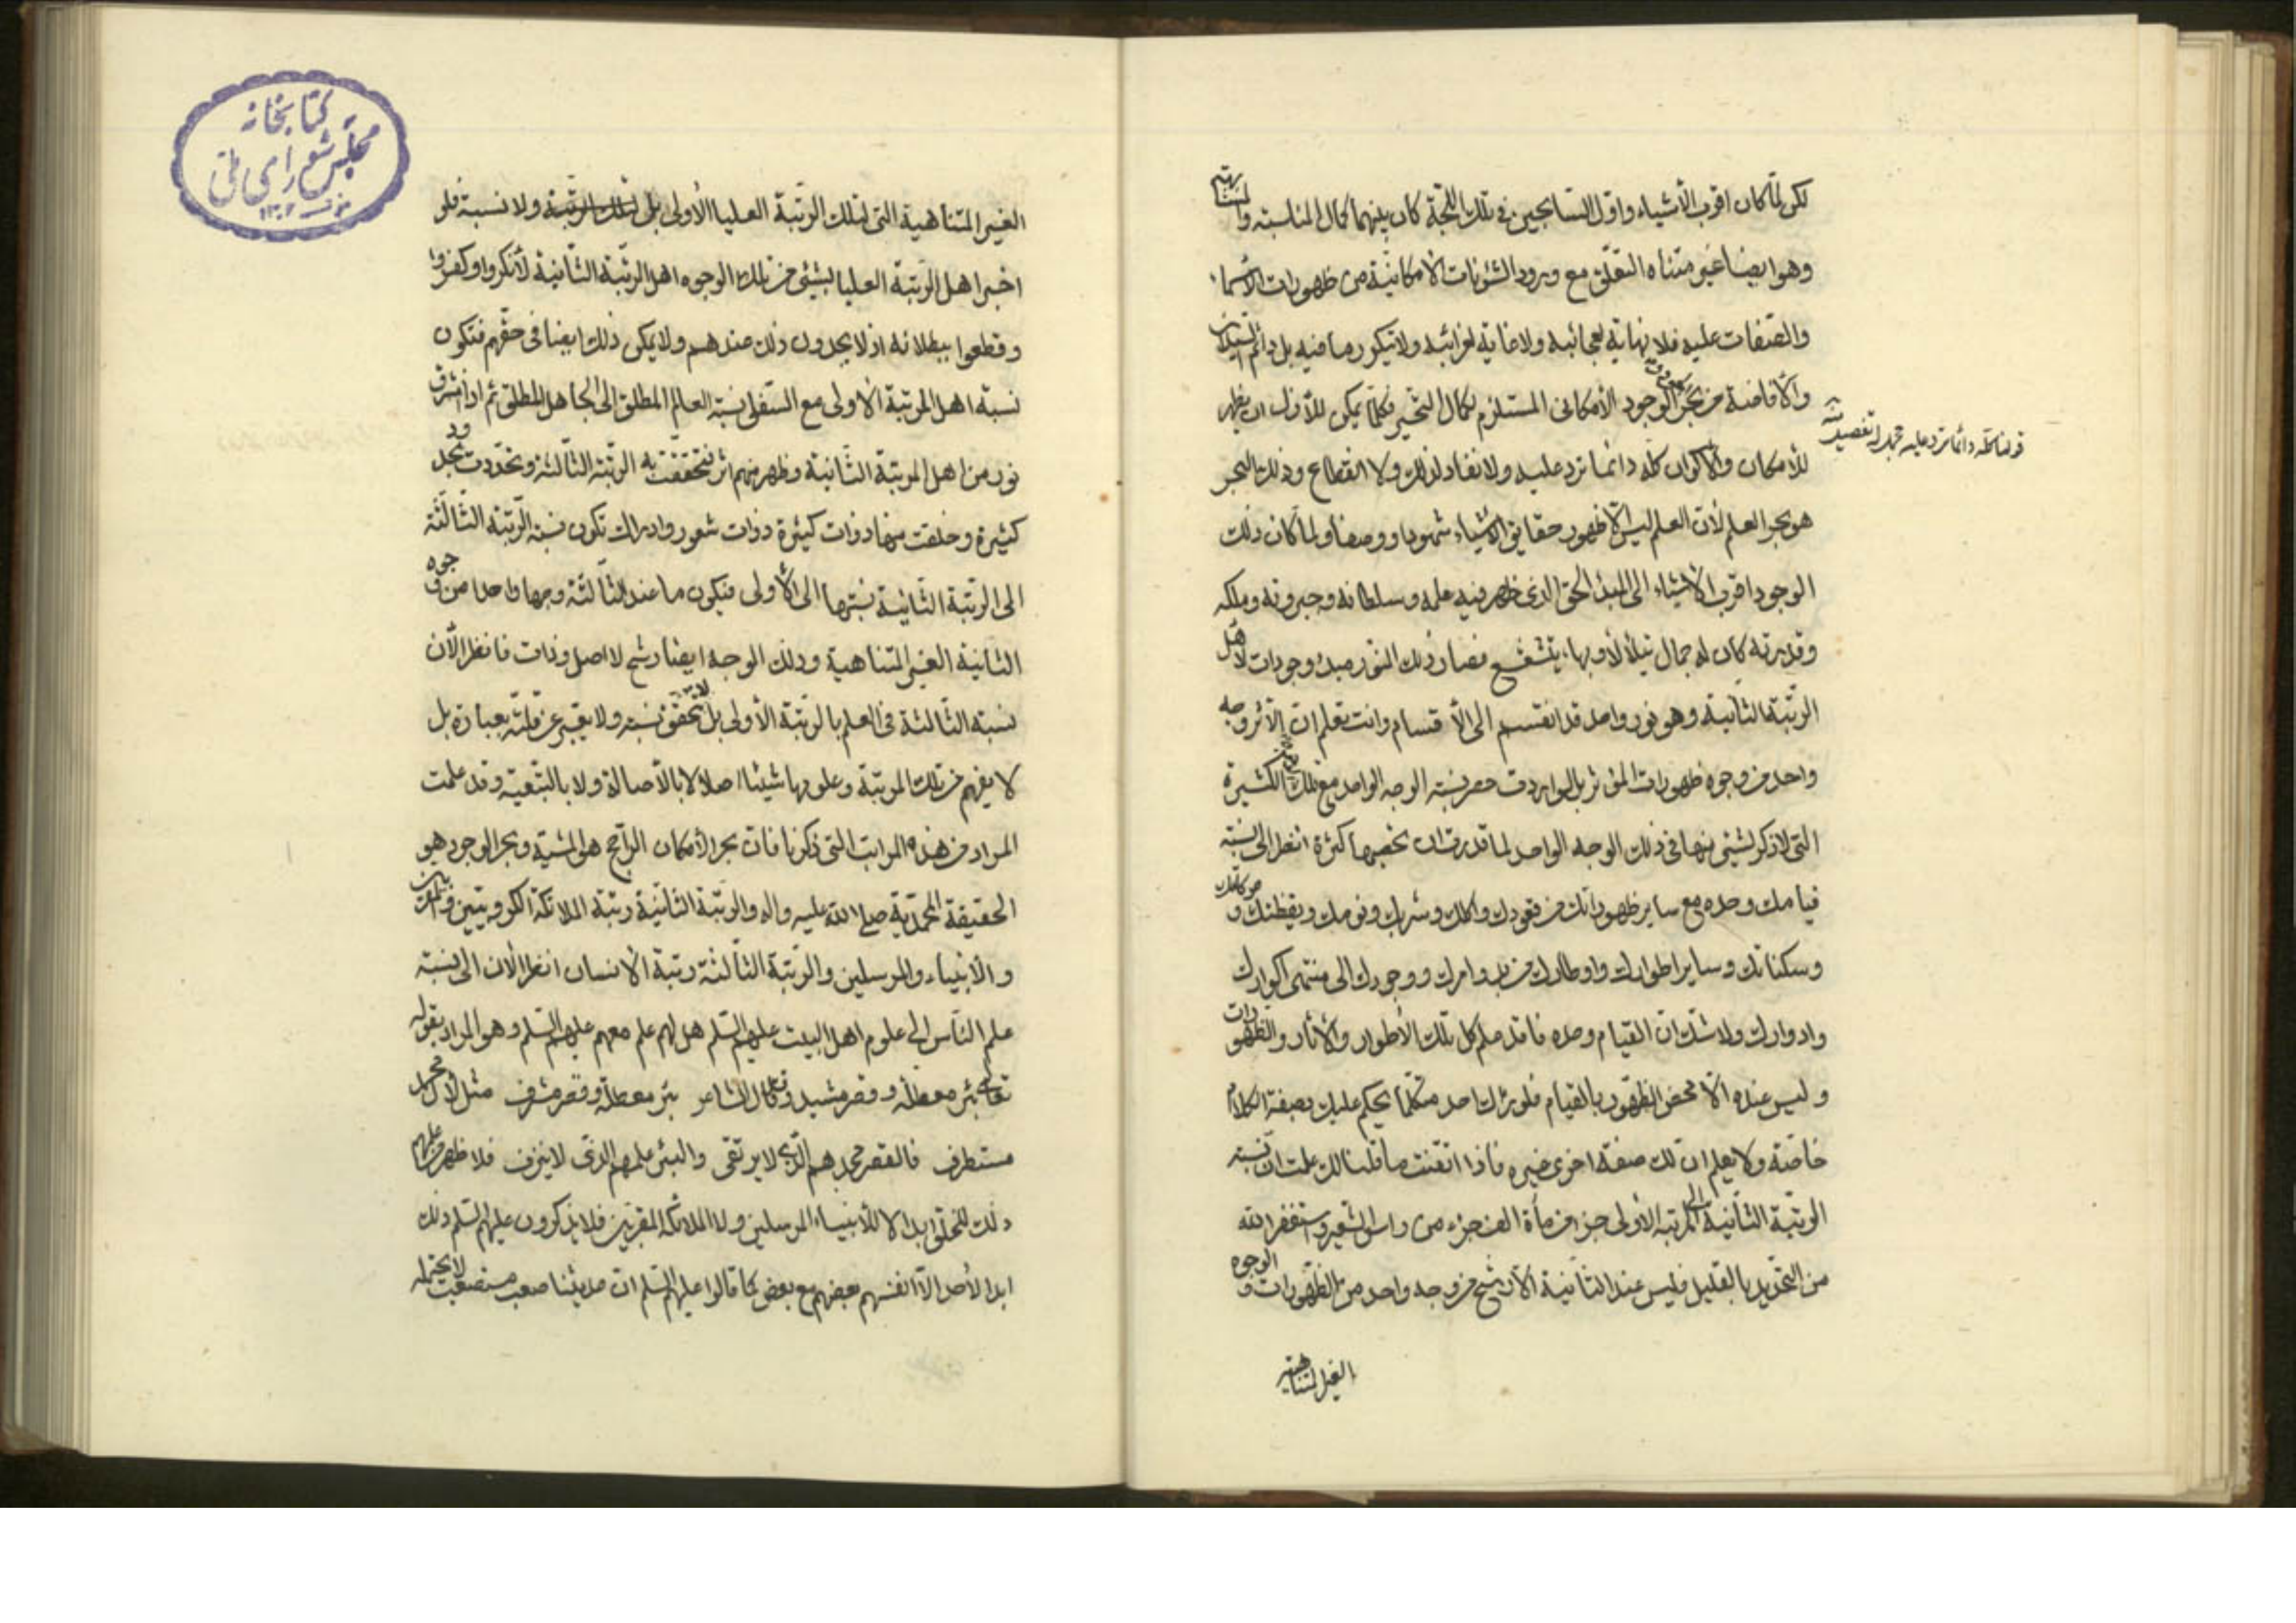 لكن لما كان اقرب الأشياء واول السابحين في تلك اللجة كان بينهما كمال المناسبة والمشابهة
وهو ايضا غير متناه التعلق مع ورود الشئونات الامكانية من ظهورات الاسماء
والصفات عليه فلا نهاية لعجائبه ولا غاية لغرائبه ولا تيكور ما فيه بل دائم
والأفاضة من بحر الوجود الأمكاني المستلزم لكمال التحير فكلما يمكن للأول ان يظهر
للأمكان والأكوان كله دائما ترد عليه ولا نفاد لذلك ولا انقطاع وذلك البحر
هو بحر العلم لأن العلم ليس الا ظهور حقايق الاشياء شهودا ووصفا ولما كان ذلك
الوجود اقرب الأشياء الى المبدء الحق الذي ظهر فيه علمه وسلطانه وجبروته وملكه
وقدرته كان له جمال يتلألأ وبهاء يتشعشع فصار ذلك النور مبدء وجودات لأهل
الرتبة الثانية وهو نور واحد قد انقسم الى الأقسام وانت تعلم ان الأثر وجه
واحد من وجوه ظهورات المؤثر بل لو اردت حصر نسبة الوجه الواحد مع تلك الكثيرة
التي لا ذكر لشيء منها في ذلك الوجه الواحد لما قدرت ان تحصيها كثرة انظر الى نسبة
قيامك وحده مع ساير ظهوراتك من قعودك واكلك وشربك ونومك ويقظتك وحركاتك
وسكناتك وساير اطوارك واوطارك من بدو امرك ووجودك الى منتهى اكوارك
وادوارك ولا شك ان القيام وحده فاقد علم كل تلك الأطوار والأثار والظهورات
وليس عنده الا محض الظهور بالقيام فلو رئاك احد متكلما يحكم عليك بصفة الكلام
خاصة ولا يعلم ان لك صفة اخرى غيره فاذا اتقنت ما قلنا لك علمت ان نسبة
الرتبة الثانية الى المرتبة الأولى جزء من مأة الف جزء من راس الشعير واستغفر الله
من التحديد بالقليل فليس عند الثانية الا رشح من وجه واحد من الظهورات والوجوه
الغير المتناهية
قولنا كله دائما ترد عليه
الغير المتناهية التي لتلك الرتبة العليا الأولى بل لتلك الرتبة ولا نسبة فلو
اخبر اهل الرتبة العليا بشيء من تلك الوجوه اهل الرتبة الثانية لأنكروا وكفروا
وقطعوا ببطلانه اذ لا يجدون ذلك عندهم ولا يمكن ذلك ايضا في حقهم فتكون
نسبة اهل المرتبة الأولى مع السفلى نسبة العالم المطلق الى الجاهل المطلق ثم اذا اشرق
نور من اهل المرتبة الثانية وظهر منهم اثر فتحققت به الرتبة الثالثة وتحددت بحدود
كثيرة وخلقت منها ذوات كثيرة ذوات شعور وادراك تكون نسبة الرتبة الثالثة
الى الرتبة الثانية نسبتها الى الأولى فيكون ما عند الثالثة وجها واحدا من وجوه
الثانية الغير المتناهية وذلك الوجه ايضا رشح لا اصل وذات فانظر الآن
نسبة الثالثة في العلم بالرتبة الأولى بل لا تتحقق نسبة ولا يعبر عن قلته بعبارة بل
لا يفهم من تلك المرتبة وعلومها شيئا اصلا لا بالأصالة ولا بالتبعية وقد علمت
المراد من هذه المراتب التي ذكرنا فان بحر الأمكان الراجح هو المشية وبحر الوجود هو
الحقيقة المحمدية صلى الله عليه واله والرتبة الثانية رتبة الملائكة الكروبيين والمقربين
والأنبياء والمرسلين والرتبة الثالثة رتبة الأنسان انظر الآن الى نسبة
علم الناس الى علوم اهل البيت عليهم السلم هل لهم علم معهم عليهم السلم وهو المراد بقوله
تعالى بئر معطلة وقصر مشيد وقال الشاعر بئر معطلة وقصر مشرف مثل لآل محمد
مستطرف فالقصر مجدهم الذي لا يرتقى والبئر علمهم الذي لا ينزف فلا ظهر من علمهم
ذلك للخلق ابدا لا للأنبياء المرسلين ولا الملائكة المقربين فلا يذكرون عليهم السلم ذلك
ابدا لأحد الا انفسهم بعضهم مع بعض كما قالوا عليهم السلم ان حديثنا صعب مستصعب لا يحتمله
كتابخانه
مجلس شورای ملی